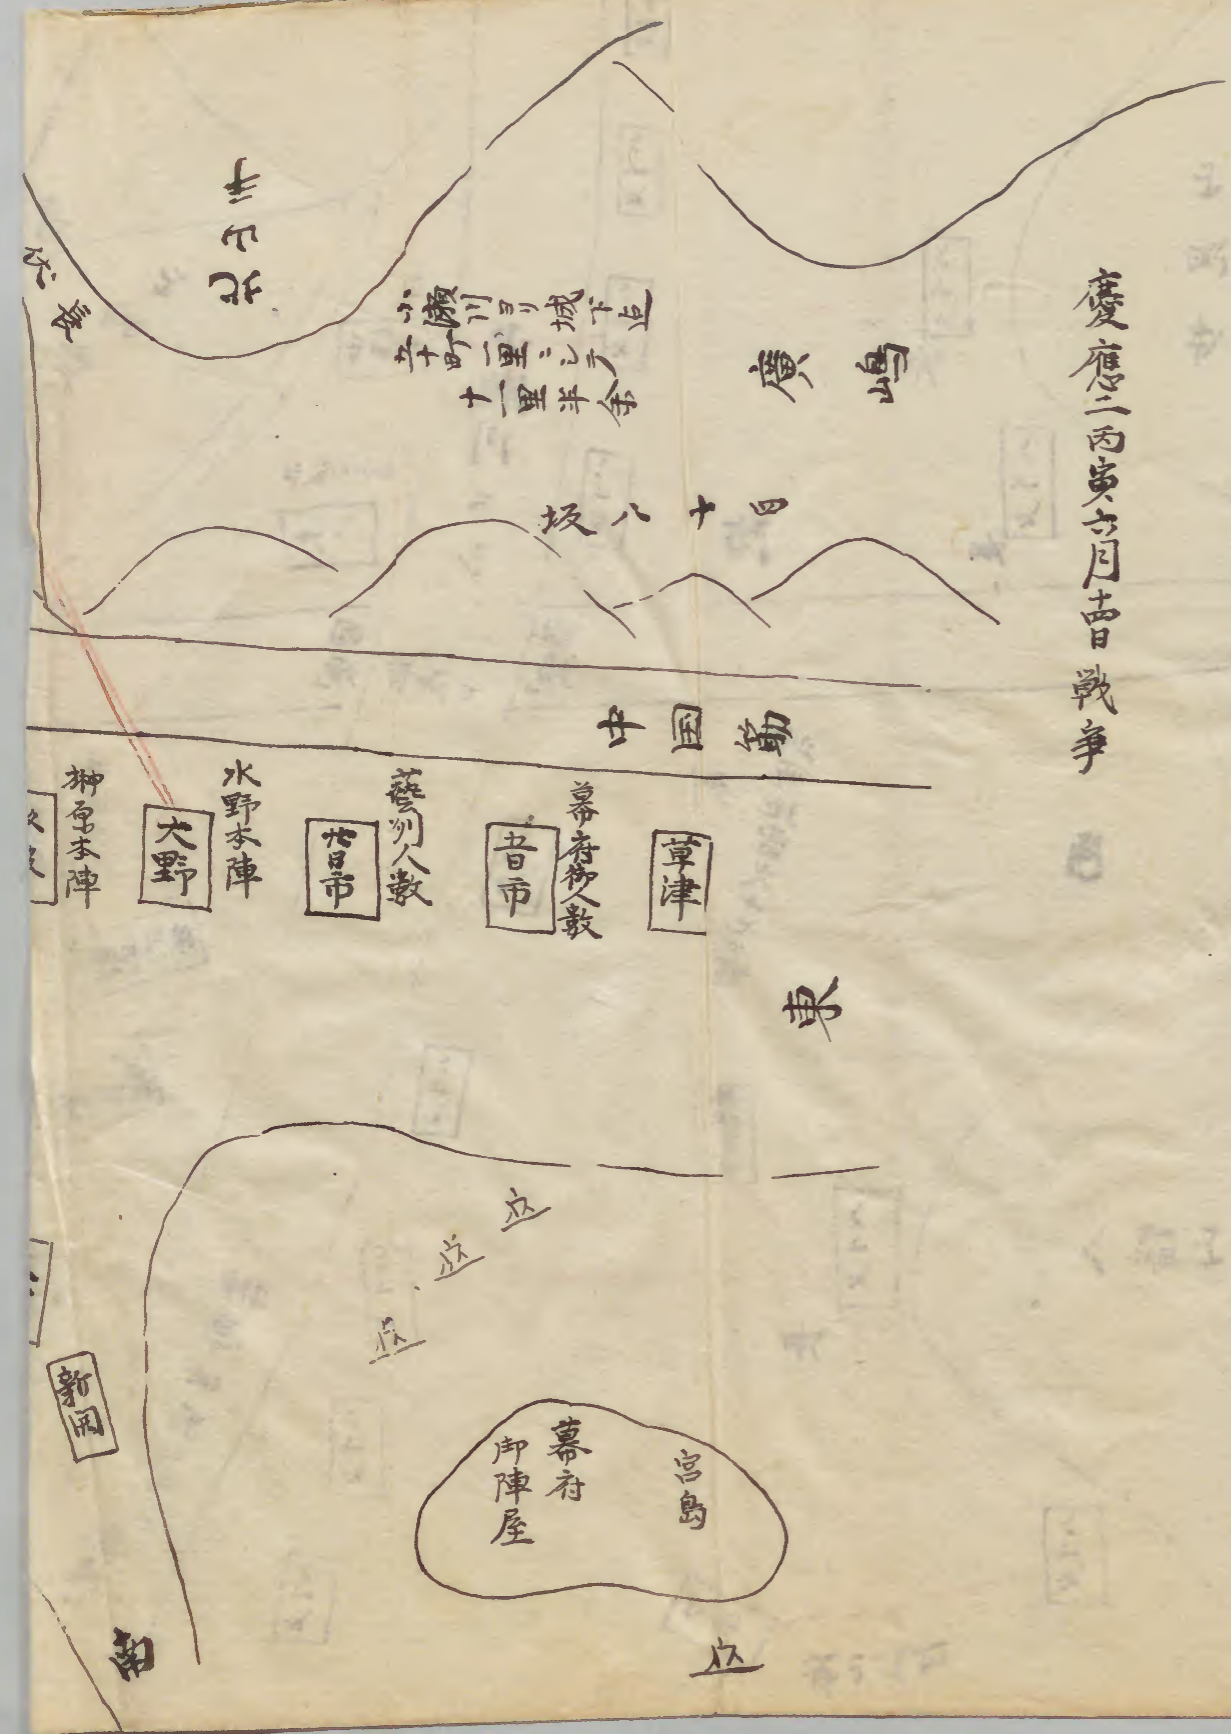 慶應二丙寅六月十四日戦争
廣嶋
小瀬川ヨリ城下迄
五十町一里ニシテ
十一里半余
四十八坂
中国筋
草津
幕府御人数
廿日市
藝州人数
大野
水野本陣
榊原本陣
東
宮島
幕府
御陣屋
新開
南